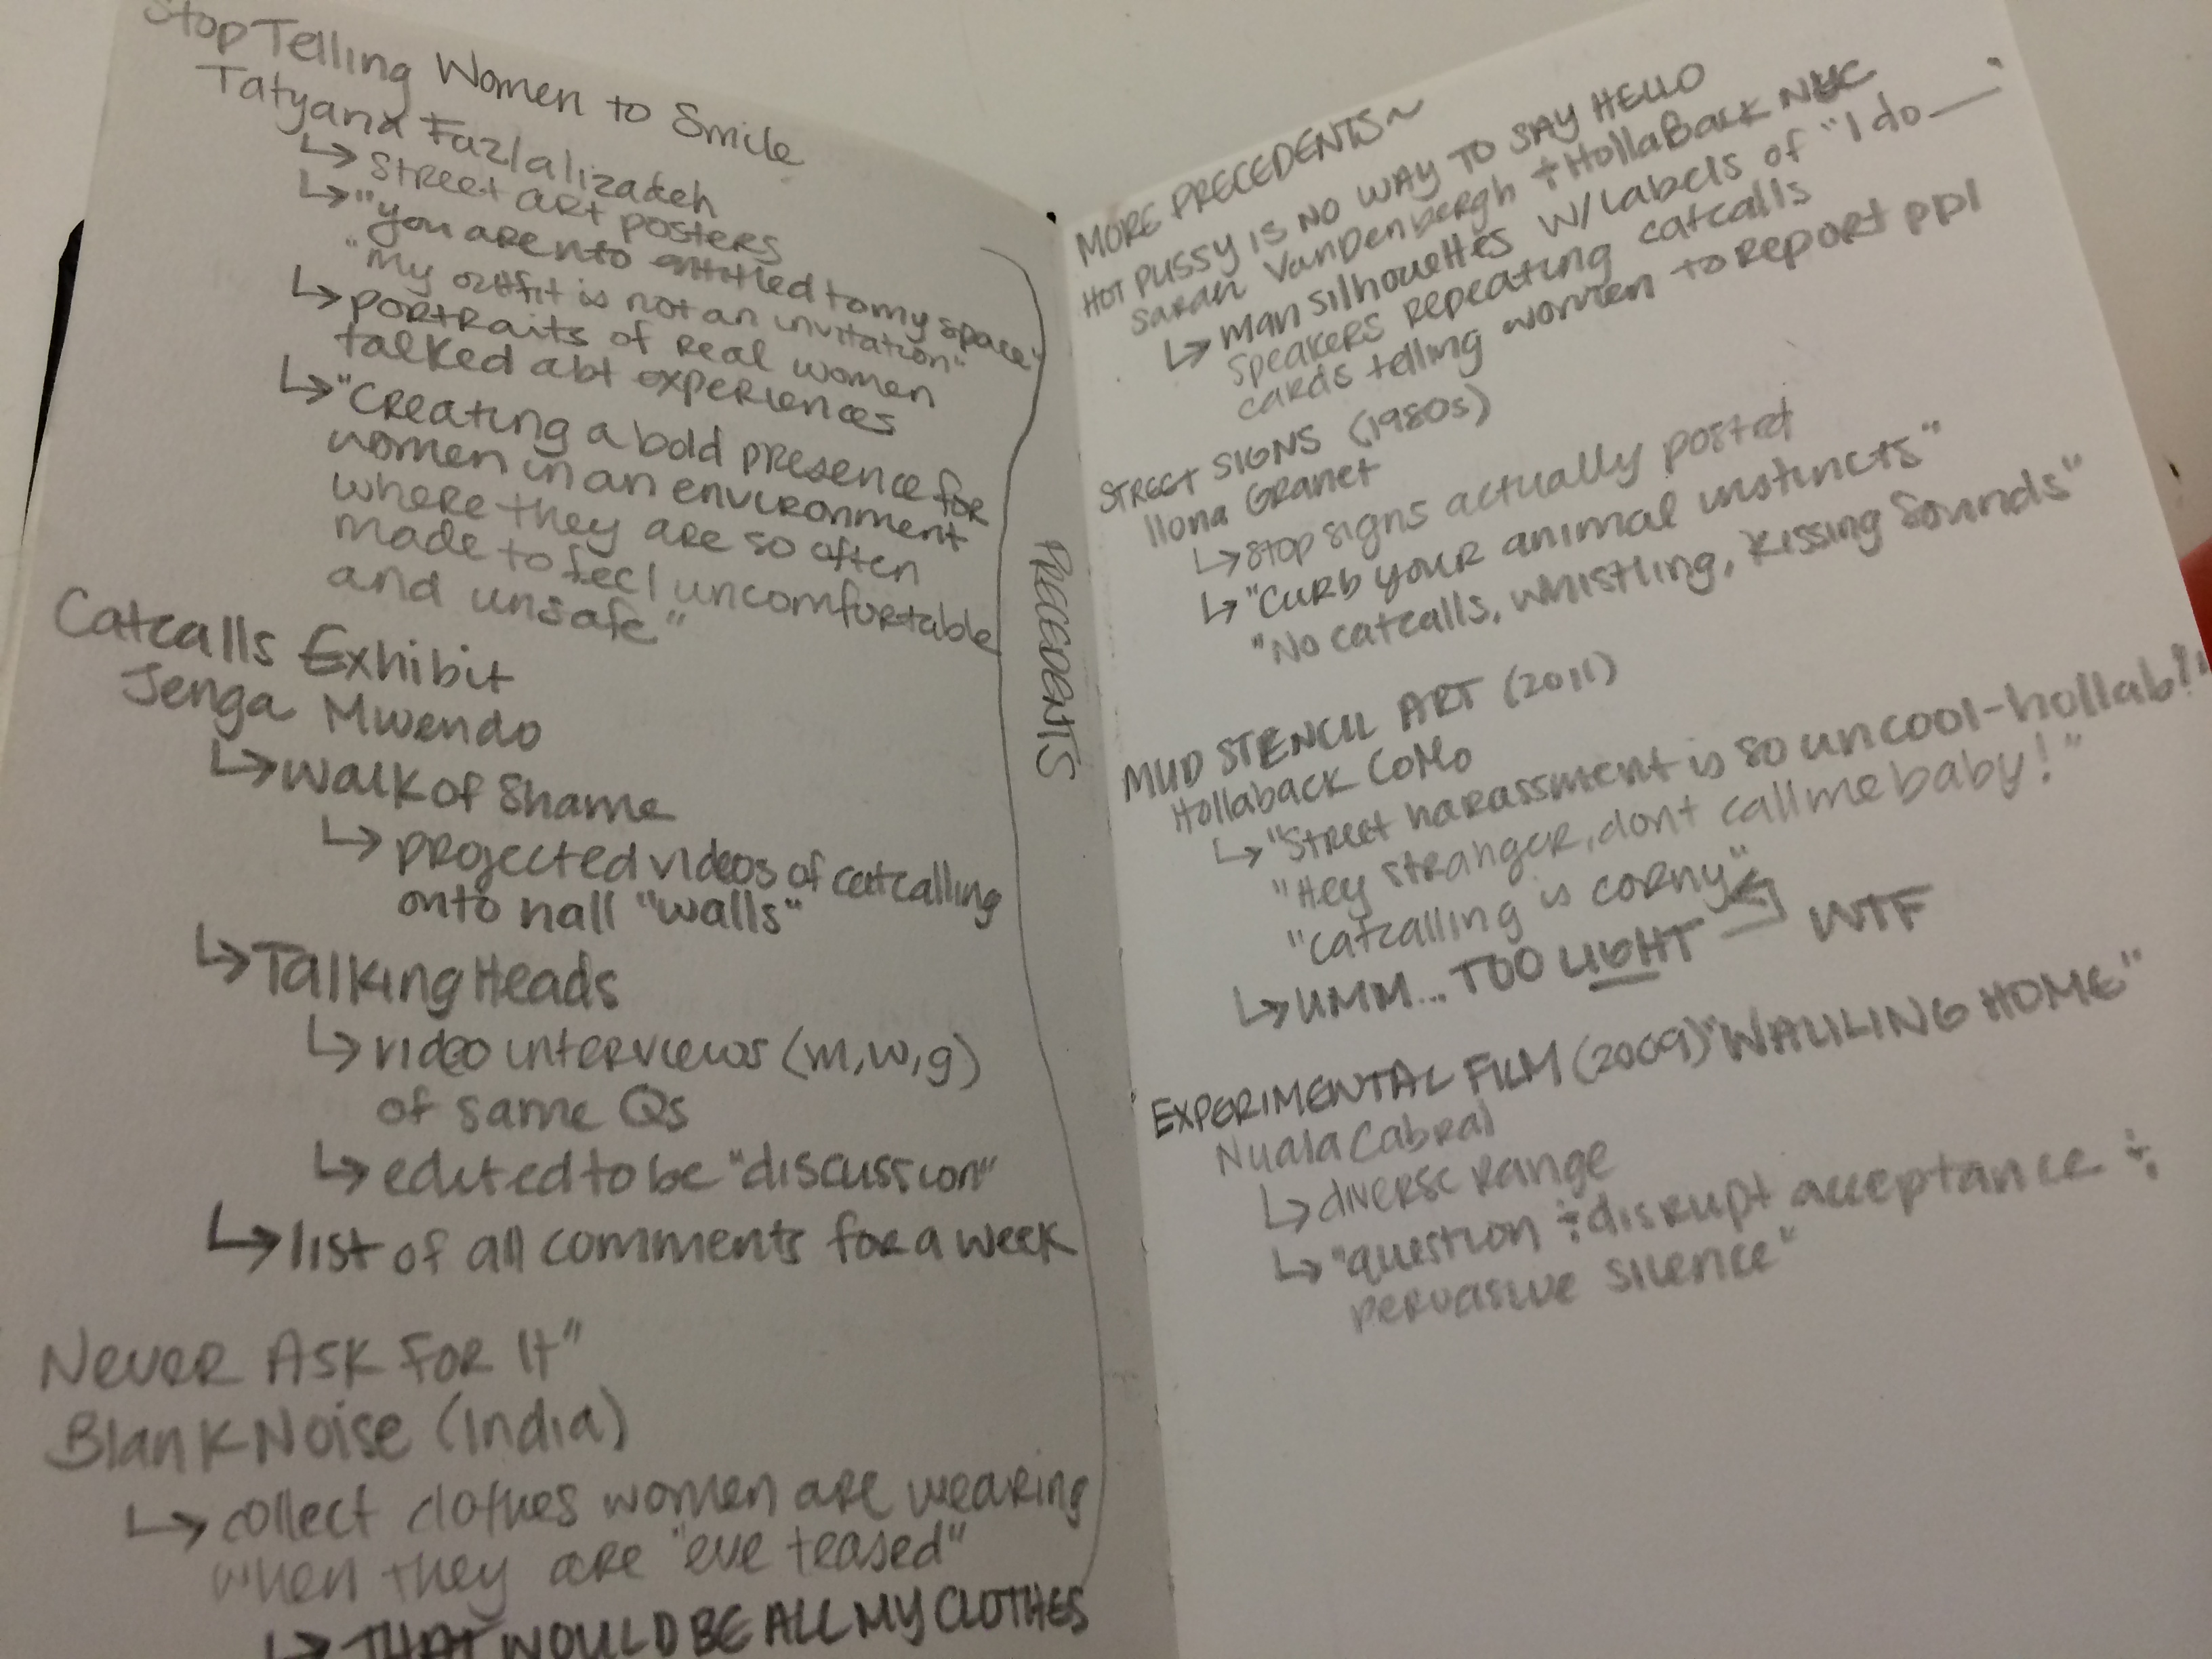 Stop Telling Women to Smile
Tatyana Fazlalizadeh
↳ street art posters
↳ "you are nto entitled to my space"
"My outfit is not an invitation"
↳ portraits of real women
talked abt experiences
↳ "Creating a bold presence for
women in an environment
where they are so often
made to feel uncomfortable
and unsafe"
Catcalls Exhibit
Jenga Mwendo
↳ Walk of Shame
↳ projected videos of catcalling
onto hall "walls"
↳ Talking Heads
↳ video interviews (m,w,g)
of same Qs
↳ edited to be "discussion"
↳ list of all comments for a week
Never Ask For It"
Blank Noise (India)
↳ collect clothes women are wearing
when they are "eve teased"
↳ THAT WOULD BE ALL MY CLOTHES
PRECEDENTS
MORE PRECEDENTS~
HOT PUSSY IS NO WAY TO SAY HELLO
Sarah VanDenbergh + HollaBack NYC
↳ man silhouettes w/ labels of "I do __"
speakers repeating catcalls
cards telling women to report ppl
STREET SIGNS (1980s)
Ilona Granet
↳ stop signs actually posted
↳ "Curb your animal instincts"
"No catcalls, whistling, kissing sounds"
MUD STENCIL ART (2011)
Hollaback CoMo
↳ "Street harassment is so uncool-hollab!"
"Hey stranger, dont call me baby!"
"catcalling is corny"
↳ UMM... TOO LIGHT WTF
EXPERIMENTAL FILM (2009) "WALKING HOME"
Nuala Cabral
↳ diverse range
↳ "question + disrupt acceptance +
pervasive silence"